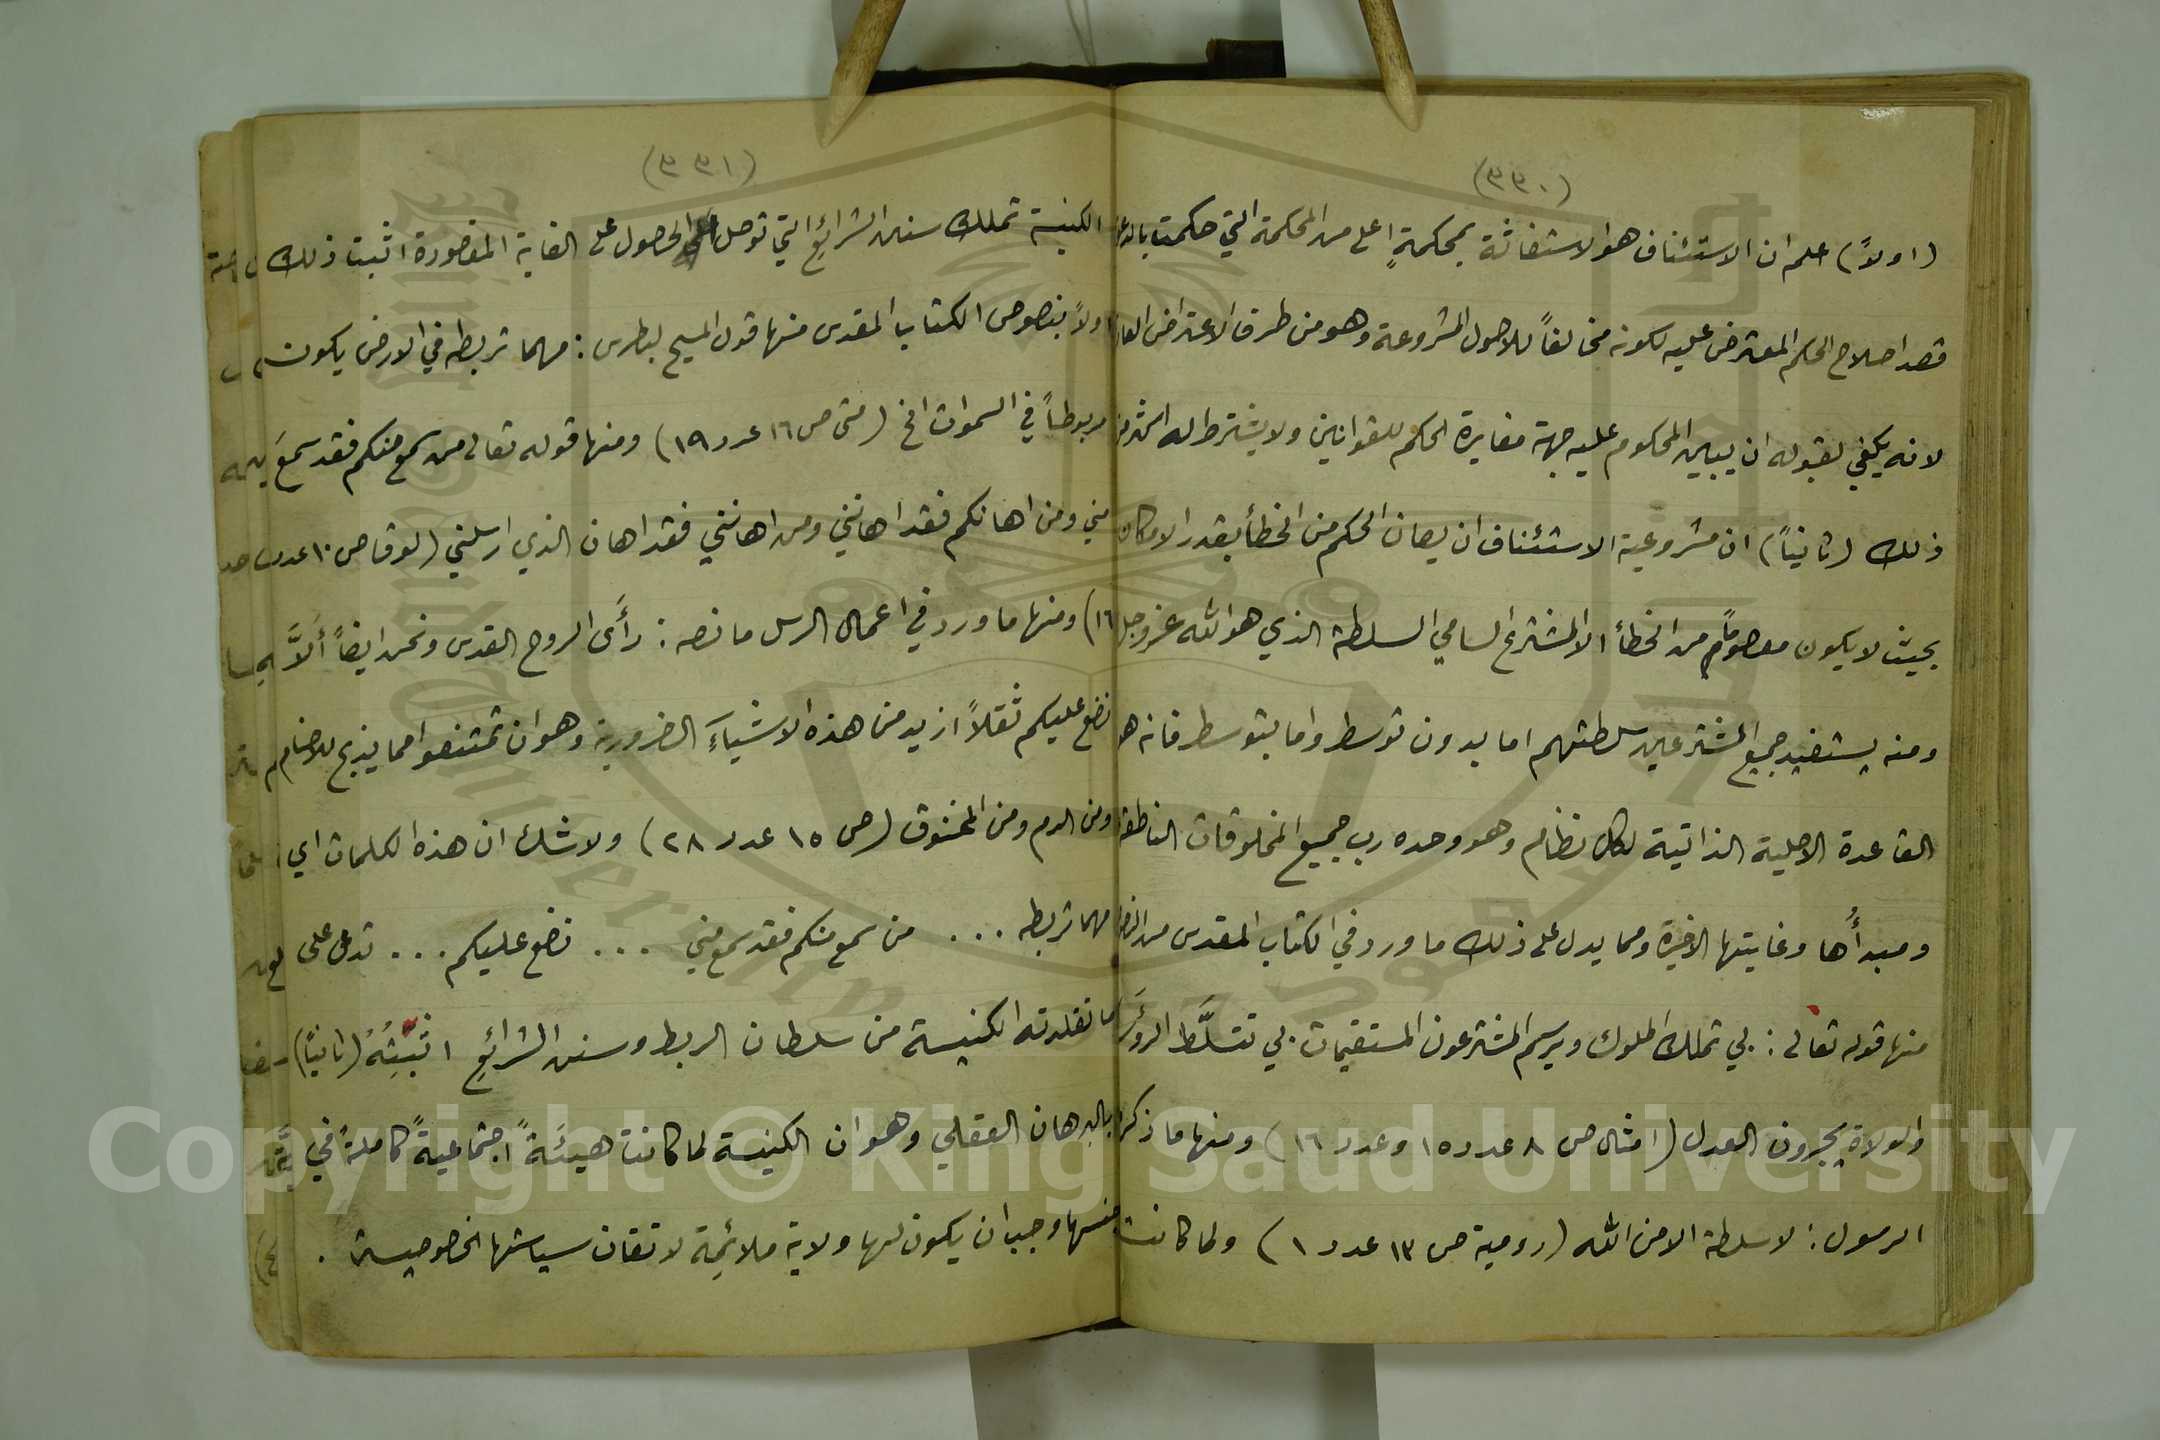 (٣٣٠)
(اولاً) اعلم ان الاستئناف هو الاستغاثة بمحكمةٍ اعلى من المحكمة التي حكمت
قصد اصلاح الحكم المعترض عليه لكونه مخالفاً للاصول المشروعة وهو من طرق الاعتراض
لانه يكفي لقبوله ان يبين المحكوم عليه جهة مغايرة الحكم للقوانين ولا يشترط له
ذلك (ثانياً) ان مشروعية الاستئناف ان يصان الحكم من الخطأ بقدر الامكان
بحيث لا يكون معصوماً من الخطأ الا المشترع السامي السلطة الذي هو الله عز وجل
ومنه يستفيد جميع المشترعين سلطتهم اما بدون توسط واما بتوسط فانه هو
القاعدة الاصلية الذاتية لكل نظام وهو وحده رب جميع المخلوقات الناطقة
ومبدأُها وغايتها الاخيرة ومما يدل على ذلك ما ورد في الكتاب المقدس من
منها قوله تعالى : بي تملك الملوك ويرسم المشترعون المستقيمات . بي تتسلَّط الروَسا
والولاة يجرون العدل (امثال ص ٨ عدد ١٥ وعدد ١٦) ومنها ما ذكره
الرسول : لا سلطة الا من الله (رومية ص ١٣ عدد ١) ولما كانت
(٣٣١)
الكنيسة تملك سنن الشرائع التي توصل الى الحصول على الغاية المقصودة اثبت ذلك
اولاً بنصوص الكتاب المقدس منها قول المسيح لبطرس : مهما تربطه في الارض يكون
مربوطاً في السموات الخ (متى ص ١٦ عدد ١٩) ومنها قوله تعالى من سمع منكم فقد سمعَ
مني ومن اهانكم فقد اهانني ومن اهانني فقد اهان الذي ارسلني (لوقا ص ١٠ عدد
١٦) ومنها ما ورد في اعمال الرسل ما نصه : رأَى الروح القدس ونحن ايضاً أَلاَّ
نضع عليكم ثقلاً ازيد من هذه الاشياءَ الضرورية وهو ان تمتنعوا مما يذبح للاصنام
ومن الدم ومن المخنوق (ص ١٥ عدد ٢٨) ولا شك ان هذه الكلمات اي
مهما تربطه ... من سمع منكم فقد سمع مني .... نضع عليكم ... تدل على
ما تقلدته الكنيسة من سلطان الربط وسنن الشرائع اثبِّتُهُ (ثانياً)
بالبرهان العقلي وهو ان الكنيسة لما كانت هيئَةً اجتماعيةً كاملةً في
جنسها وجب ان يكون لها ولاية ملائمة لاتقان سياستها الخصوصية .
Copyright © King Saud University